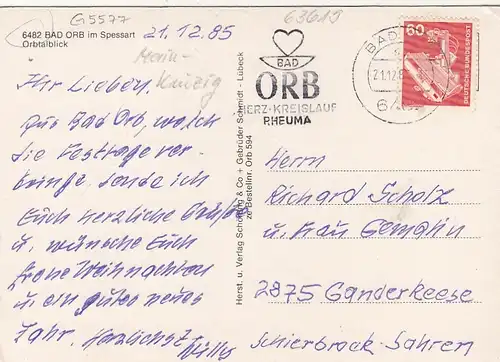 G5577
63619
6482 BAD ORB im Spessart
Orbtalblick
21.12.85
Main-
Kinzig
Ihr Lieben,
Aus Bad Orb, wo ich
die Festtage ver-
bringe, sende ich
Euch herzliche Grüße
u. wünsche Euch
frohe Weihnachten
u. ein gutes neues
Jahr. Herzlichst Willy
Herst. u. Verlag Schöning & Co. + Gebrüder Schmidt - Lübeck
Bestellnr. Orb 594
BAD
ORB
HERZ-KREISLAUF
RHEUMA
BAD
21.12.8
60
DEUTSCHE BUNDESPOST
Herrn
Richard Scholz
u. Frau Gemahlin
2875 Ganderkeese
Schierbrock-Sahren